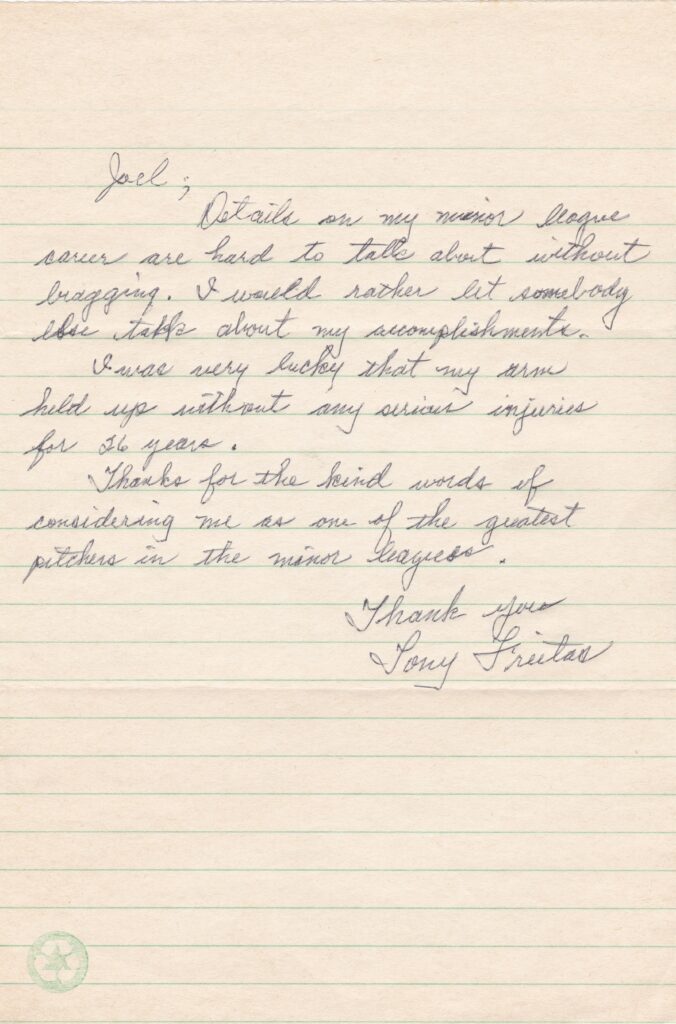 Joel;
Details on my minor league
career are hard to talk about without
bragging. I would rather let somebody
else talk about my accomplishments.
I was very lucky that my arm
held up without any serious injuries
for 26 years.
Thanks for the kind words of
considering me as one of the greatest
pitchers in the minor leagues.
Thank you
Tony Freitas